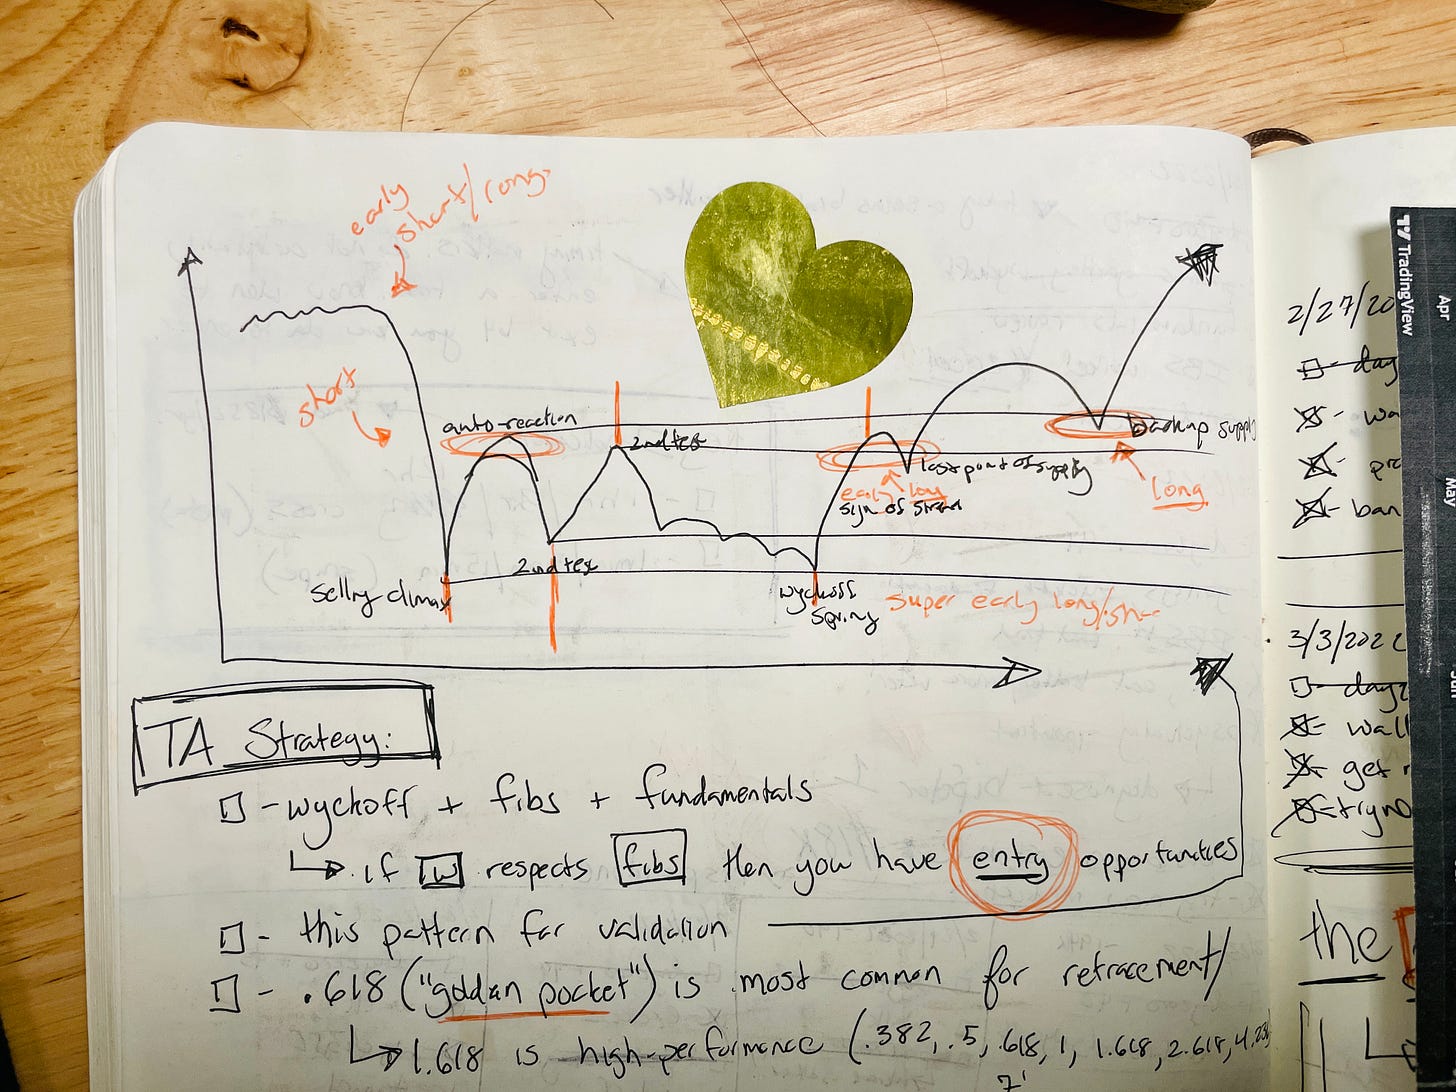 early
short/long
short
auto-reaction
2nd test
backup supply
last point of supply
early long
sign of
long
2nd test
selling climax
wyckoff
spring
super early long/
TA Strategy:
- wyckoff + fibs + fundamentals
if W respects fibs then you have entry opportunities
- this pattern for validation
- .618 ("golden pocket") is most common for retracement/
1.618 is high-performance (.382, .5, .618, 1, 1.618, 2.618, 4.236
TradingView
Apr
May
Jun
2/27/20
day
wa
pro
ban
3/3/202
days
wall
get
the